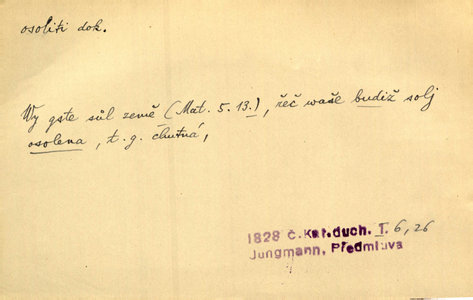 osoliti dok.
Wy gste sůl země (Mat. 5. 13.), řeč waše budiž solj
osolena, t. g. chutná,
1828 Č. Kat. duch. I. 6, 26
Jungmann, Předmluva